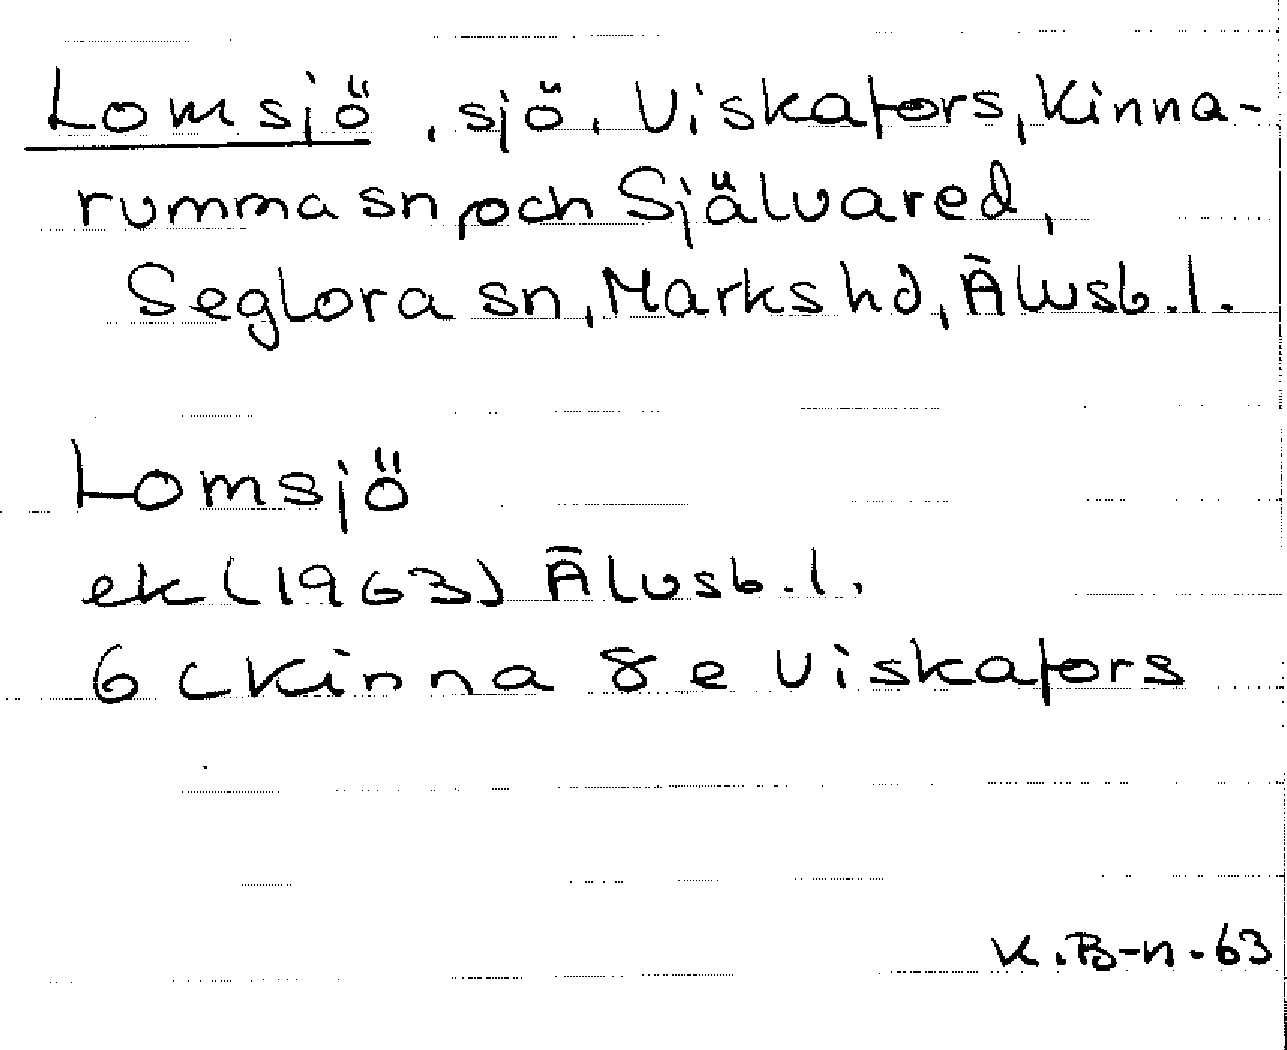 Lomsjö, sjö, Viskafors, Kinna-
rumma sn och Självared,
Seglora sn, Marks hd, Älvsb.l.
Lomsjö
ek (1963) Älvsb.l.
6 c Kinna 8 e Viskafors
K.B-n. 63